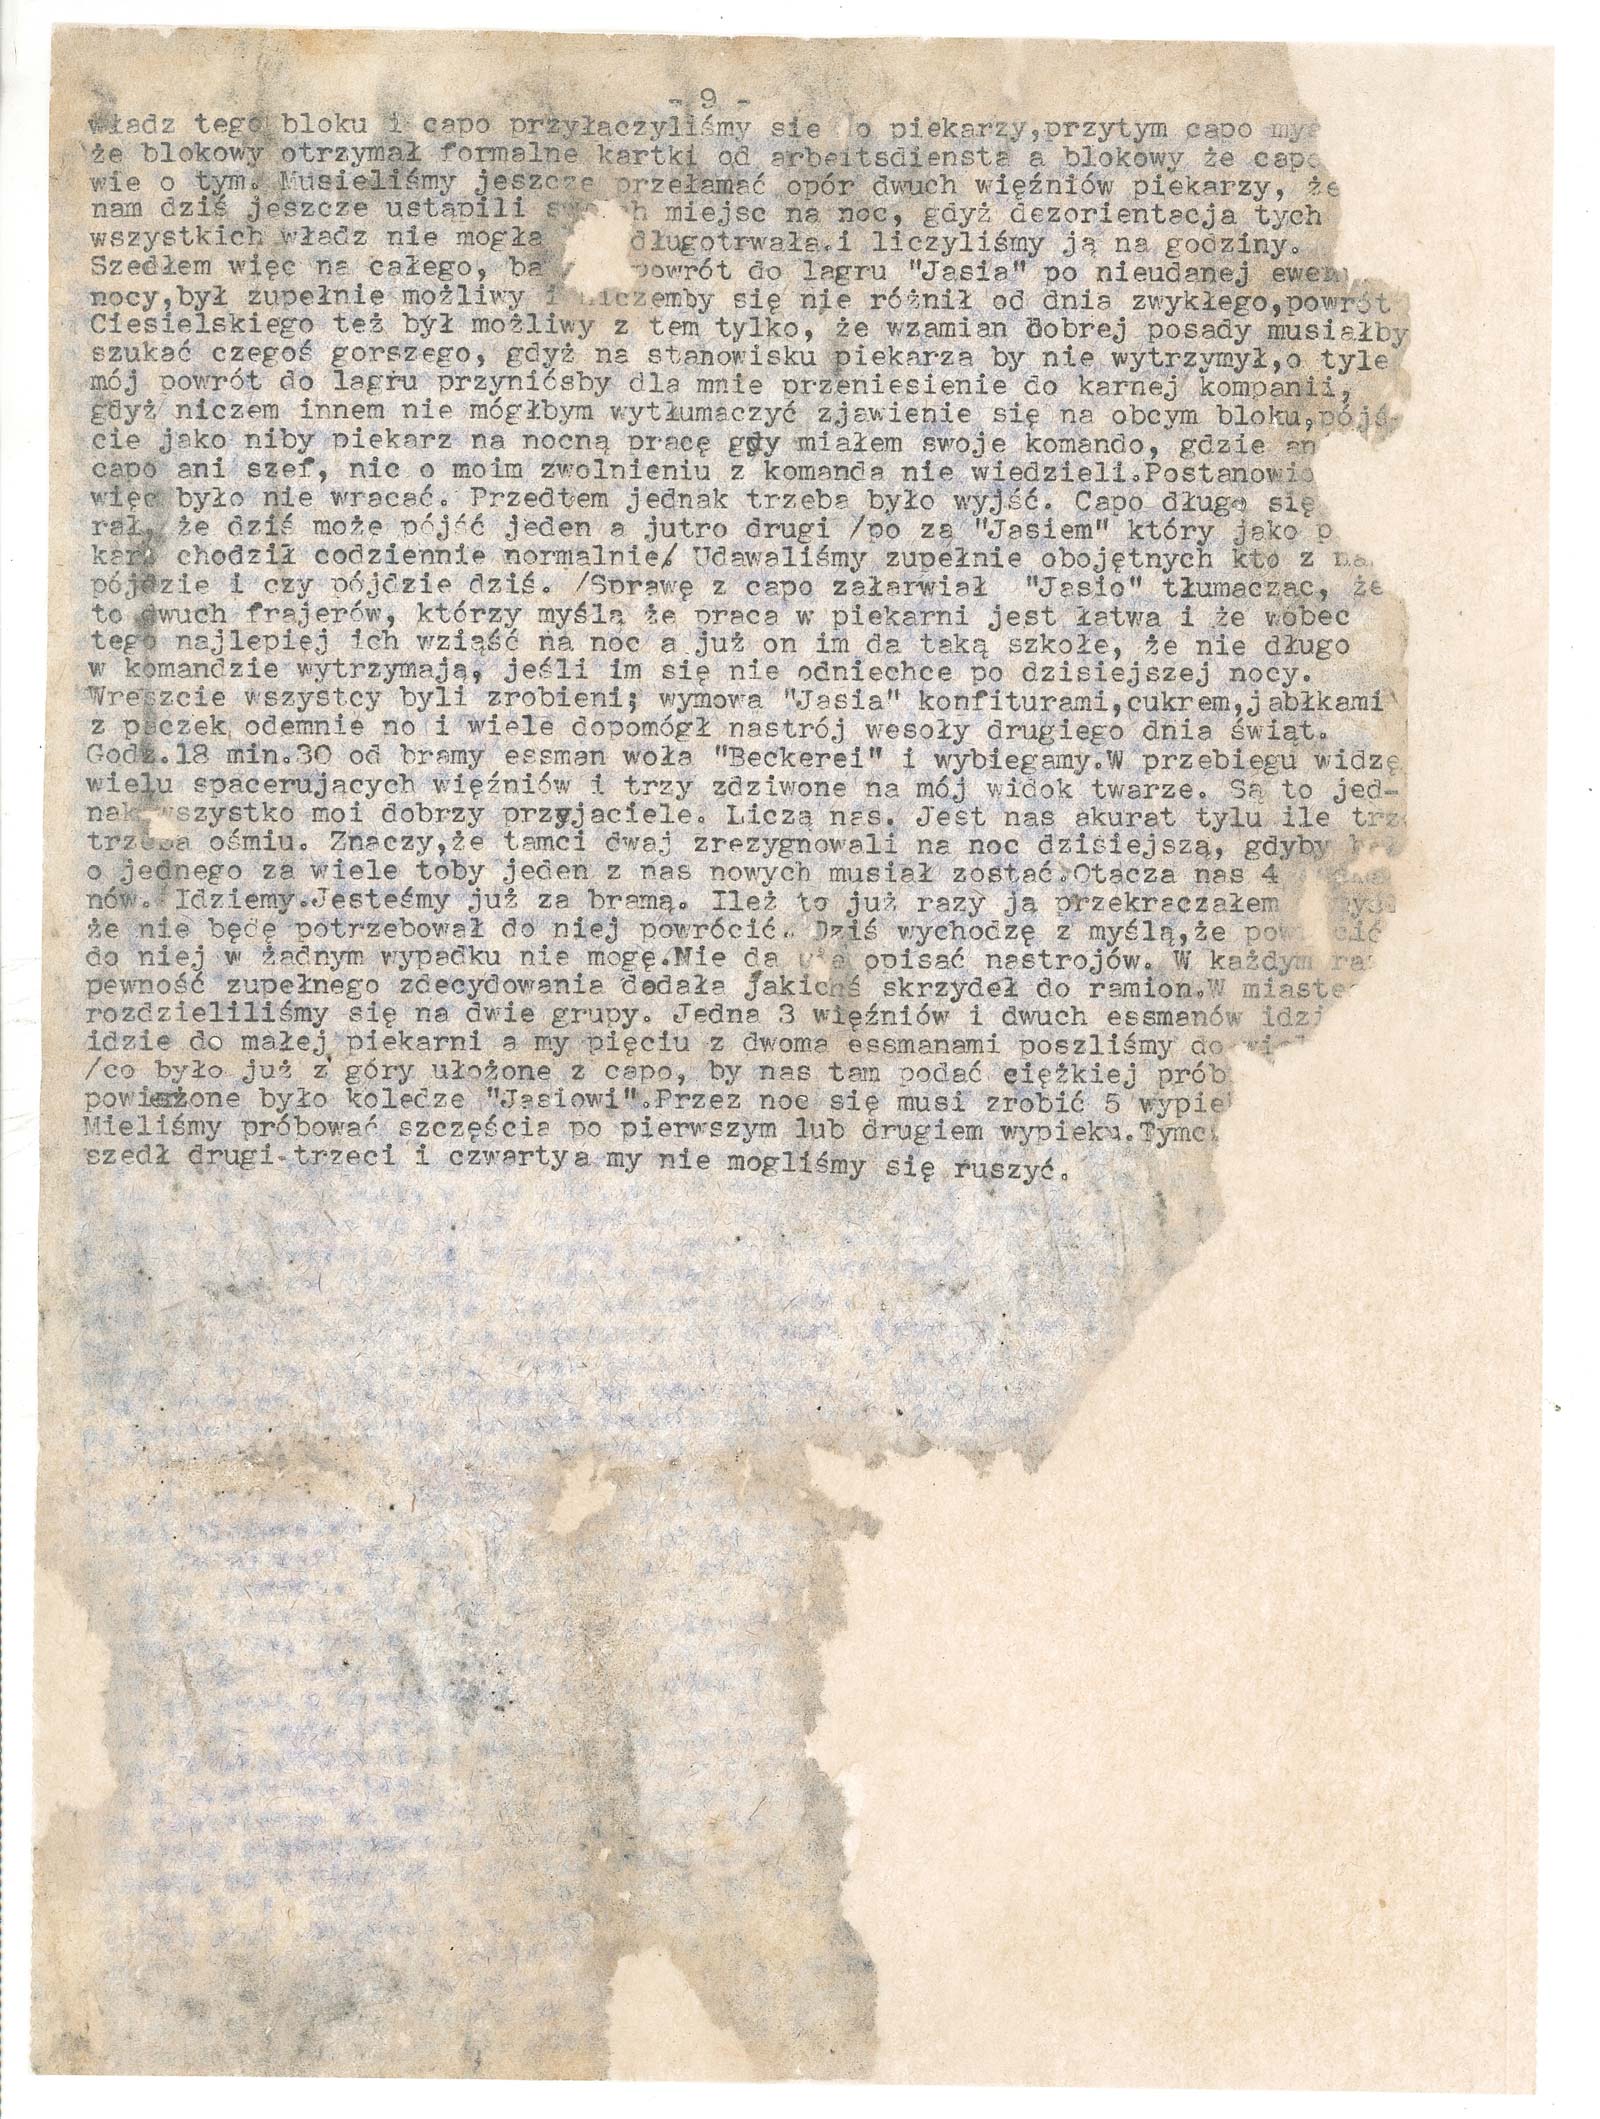 - 9 -
władz tego bloku i capo przyłaczyliśmy sie o piekarzy,przytym capo
że blokowy otrzymał formalne kartki od arbeitsdiensta a blokowy że capo
wie o tym. Musieliśmy jeszcze przełamać opór dwuch więźniów piekarzy, że
nam dziś jeszcze ustąpili miejsc na noc, gdyż dezorientacja tych
wszystkich władz nie mogła długotrwała.i liczyliśmy ją na godziny.
Szedłem więc na całego, ba powrót do lagru "Jasia" po nieudanej
nocy,był zupełnie możliwy i niczemby się nie różnił od dnia zwykłego,powrót
Ciesielskiego też był możliwy z tem tylko, że wzamian dobrej posady musiałby
szukać czegoś gorszego, gdyż na stanowisku piekarza by nie wytrzymył,o tyle
mój powrót do lagru przyniósby dla mnie przeniesienie do karnej kompanii,
gdyż niczem innem nie mógłbym wytłumaczyć zjawienie się na obcym bloku,pójś-
cie jako niby piekarz na nocną pracę gdy miałem swoje komando, gdzie an
capo ani szef, nic o moim zwolnieniu z komanda nie wiedzieli.Postanowio
więc było nie wracać. Przedtem jednak trzeba było wyjść. Capo długo się
rał, że dziś może pójść jeden a jutro drugi /po za "Jasiem" który jako p
karz chodził codziennie normalnie/ Udawaliśmy zupełnie obojętnych kto z na
pójdzie i czy pójdzie dziś. /Sprawę z capo załarwiał "Jasio" tłumacząc, że
to dwuch frajerów, którzy myślą że praca w piekarni jest łatwa i że wobec
tego najlepiej ich wziąść na noc a już on im da taką szkołe, że nie długo
w komandzie wytrzymają, jeśli im się nie odniechce po dzisiejszej nocy.
Wreszcie wszystcy byli zrobieni; wymowa "Jasia" konfiturami,cukrem,jabłkami
z paczek odemnie no i wiele dopomógł nastrój wesoły drugiego dnia świąt.
Godz.18 min.30 od bramy essman woła "Beckerei" i wybiegamy.W przebiegu widzę
wielu spacerujacych więźniów i trzy zdziwone na mój widok twarze. Są to jed-
nak wszystko moi dobrzy przyjaciele. Liczą nas. Jest nas akurat tylu ile trz
trzeba ośmiu. Znaczy,że tamci dwaj zrezygnowali na noc dzisiejszą, gdyby
o jednego za wiele toby jeden z nas nowych musiał zostać.Otacza nas 4
nów. Idziemy.Jesteśmy już za bramą. Ileż to już razy ją przekraczałem
że nie będę potrzebował do niej powrócić. Dziś wychodzę z myślą,że powrócić
do niej w żadnym wypadku nie mogę.Nie da się opisać nastrojów. W każdym raz
pewność zupełnego zdecydowania dodała jakichś skrzydeł do ramion.W miaste
rozdzieliliśmy się na dwie grupy. Jedna 3 więźniów i dwuch essmanów idzi
idzie do małej piekarni a my pięciu z dwoma essmanami poszliśmy do
/co było już z góry ułożone z capo, by nas tam podać ciężkiej prób
powierzone było koledze "Jasiowi".Przez noc się musi zrobić 5 wypie
Mieliśmy próbować szczęścia po pierwszym lub drugiem wypieku.Tymc
szedł drugi-trzeci i czwarty a my nie mogliśmy się ruszyć.